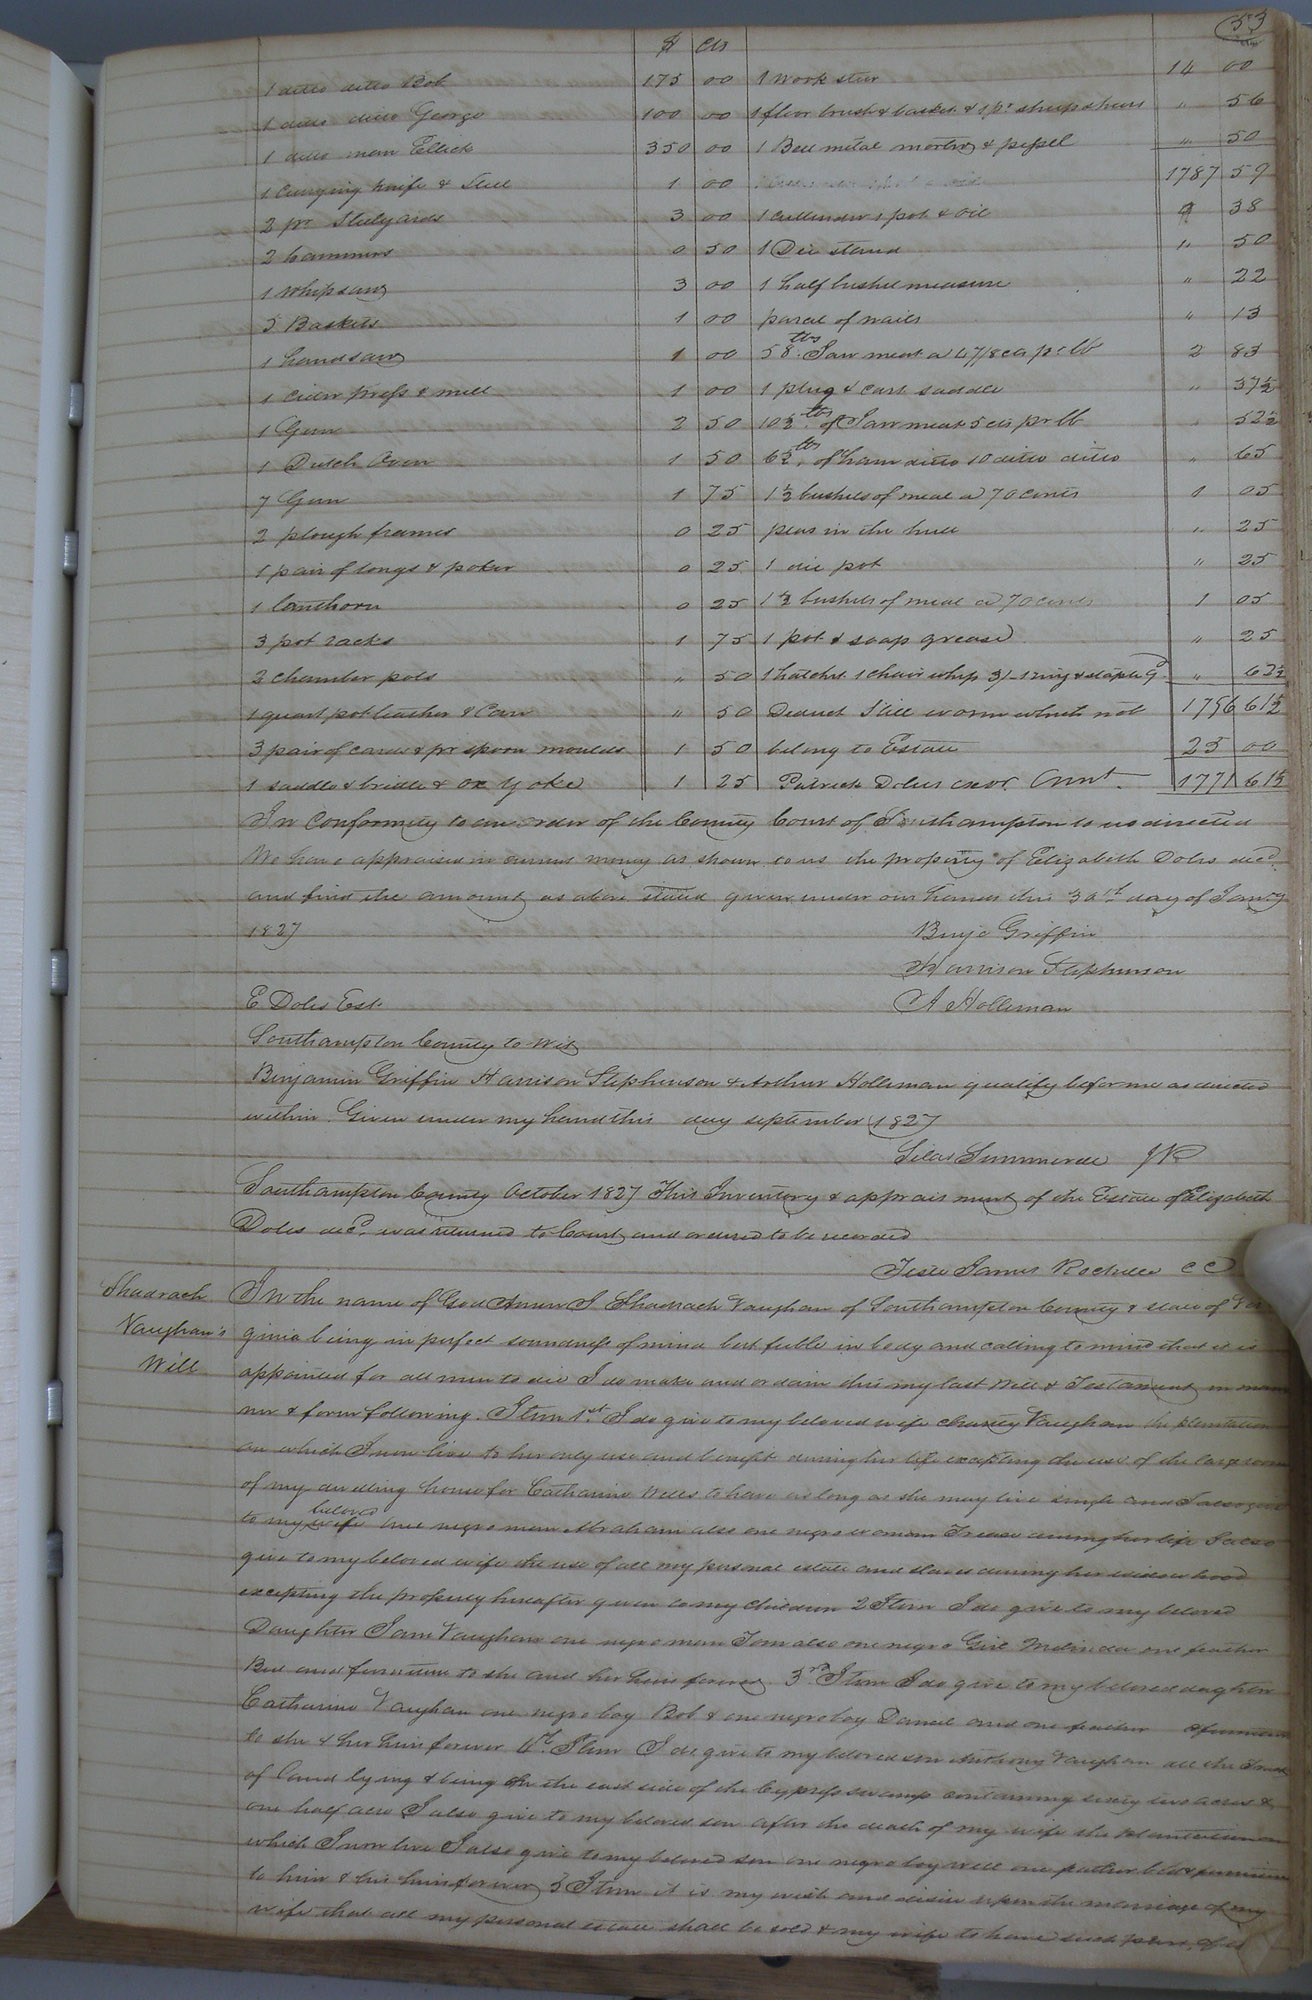 53
$ cts
1 ditto ditto Bob 175 00 1 work steer 14 00
1 ditto ditto George 100 00 1 floor brush & basket & 1 pr sheep shears " 56
1 ditto man Ellick 350 00 1 Bell metal mortar & pessel " 50
1 Currying knife & Steel 1 00 1787 59
2 pr Stilyards 3 00 1 cullender 1 pot & oil 9 38
2 hammers 0 50 1 Die stand " 50
1 whipsaw 3 00 1 half bushel measure " 22
5 Baskets 1 00 parcel of nails " 13
1 handsaw 1 00 58 lbs Jaw meat a 4 7/8 cts pr lb 2 83
1 cider press & mill 1 00 1 plug & cart saddle " 37½
1 Gun 2 50 10½ lbs of Jaw meat 5 cts pr lb " 52½
1 Dutch Oven 1 50 6½ lbs of ham ditto 10 ditto ditto " 65
7 Gum 1 75 1½ bushels of meal a 70 cents 1 05
2 plough frames 0 25 peas in the hull " 25
1 pair of tongs & poker 0 25 1 die pot " 25
1 lanthorn 0 25 1½ bushels of meal a 70 cents 1 05
3 pot racks 1 75 1 pot & soap grease " 25
2 chamber pots " 50 1 hatchet 1 chair whip 3/- 1 ring & staple 9d " 62½
1 quart pot leather & Can " 50 Deduct Still worm which not 1796 61½
3 pair of cards & pr spoon moulds 1 50 belong to Estate 25 00
1 saddle & bridle & ox yoke 1 25 Patrick Doles exor. Amt 1771 61½
In Conformity to an order of the County Court of Southampton to us directed
We have appraised in current money as shown to us the property of Elizabeth Doles decd.
and find the amount as above stated given under our hands this 30th day of Jan'y
1827 Benja Griffin
Harrison Stephenson
A Holleman
E. Doles Est.
Southampton County to Wit
Benjamin Griffin Harrison Stephenson & Arthur Holleman qualify before me as directed
within. Given under my hand this day september 1827
Silas Summerell JP
Southampton County October 1827 This Inventory & appraisment of the Estate of Elizabeth
Doles decd. was returned to Court and ordered to be recorded
Teste James Rochelle CC
Shadrach
Vaughan's
Will
In the name of God Amen I Shadrach Vaughan of Southampton County & state of Vir
ginia being in perfect soundness of mind but feeble in body and calling to mind that it is
appointed for all men to die I do make and ordain this my last Will & Testament in man
ner & form following. Item 1st. I do give to my beloved wife charity Vaughan the plantation
on which I now live to her only use and benefit during her life excepting the use of the large room
of my dwelling house for Catharine Wells to have as long as she may live single and I also give
to my beloved wife one negro man Abraham also one negro woman Treasa during her life I also
give to my beloved wife the use of all my personal estate and slaves during her widowhood
excepting the property hereafter given to my children 2 Item I do give to my beloved
Daughter Jane Vaughan one negro man Tom also one negro Girl Melinda one feather
Bed and furniture to she and her heirs forever 3rd Item I do give to my beloved daughter
Catharine Vaughan one negro boy Bob & one negro boy Daniel and one feather & furniture
to she & her heirs forever 4th. Item I do give to my beloved son Anthony Vaughan all the Tract
of land lying & being on the east side of the Cypress swamp containing sixty two acres &
one half acre I also give to my beloved son after the death of my wife the plantation on
which I now live I also give to my beloved son one negro boy Will one feather bed & furniture
to him & his heirs forever 5 Item it is my wish and desire upon the marriage of my
wife that all my personal estate shall be sold & my wife to have such part of it